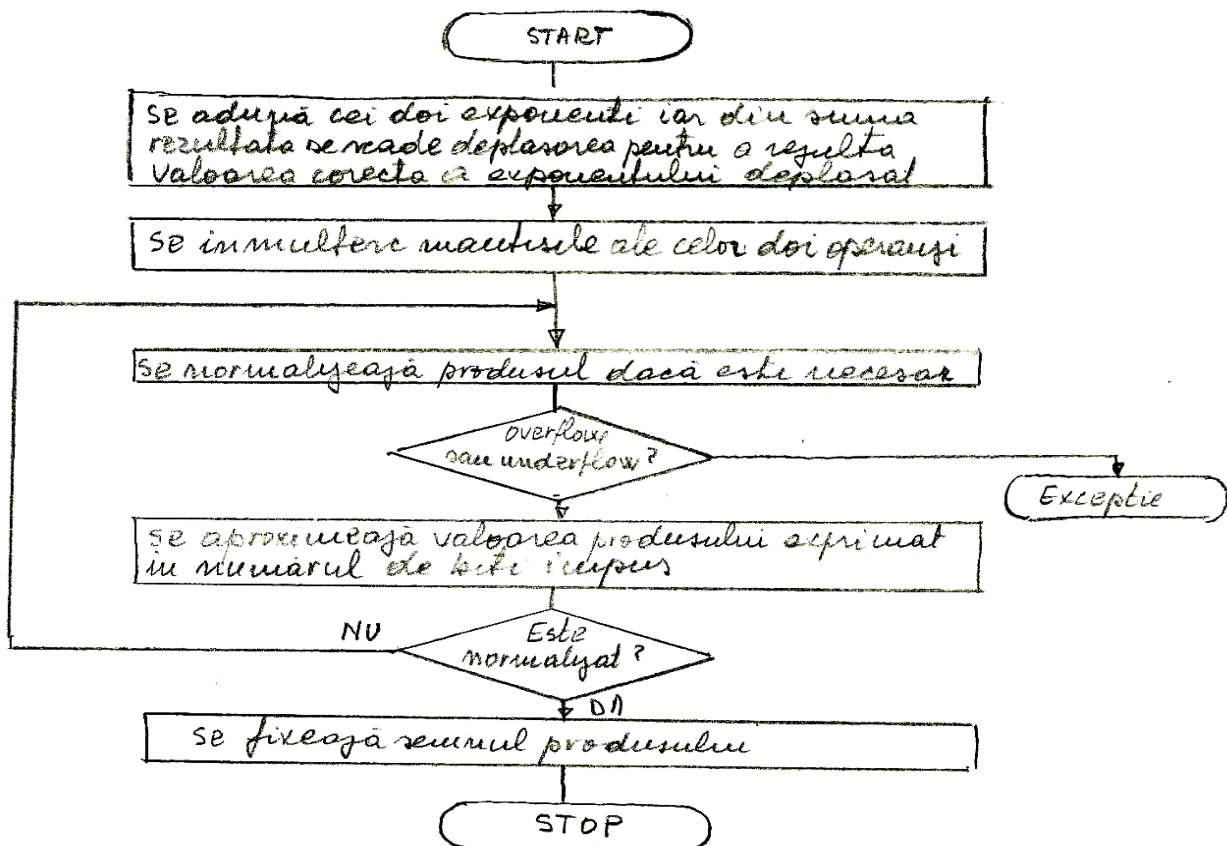 START
Se adună cei doi exponenti iar din suma
rezultata se scade deplasarea pentru a rezulta
valoarea corecta a exponentului deplasat
Se inmultesc mantisele ale celor doi operanzi
Se normalizează produsul dacă este necesar
overflow
sau underflow?
Exceptie
Se aproximează valoarea produsului exprimat
in numărul de biti impus
NU
Este
normalizat?
DA
Se fixează semnul produsului
STOP